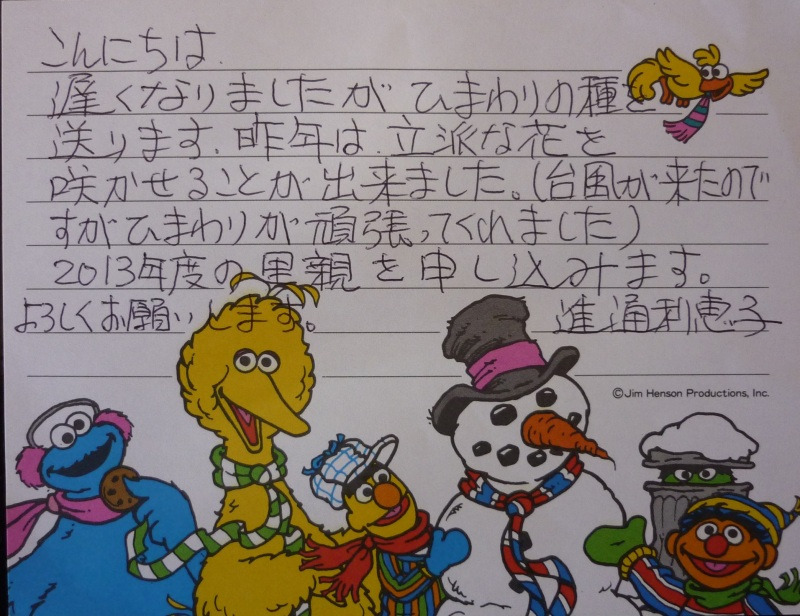 こんにちは.
遅くなりましたがひまわりの種を
送ります.昨年は.立派な花を
咲かせることが出来ました。(台風が来たので
すがひまわりが頑張ってくれました)
2013年度の里親を申し込みます。
よろしくお願いします。 進通利恵子
©Jim Henson Productions, Inc.